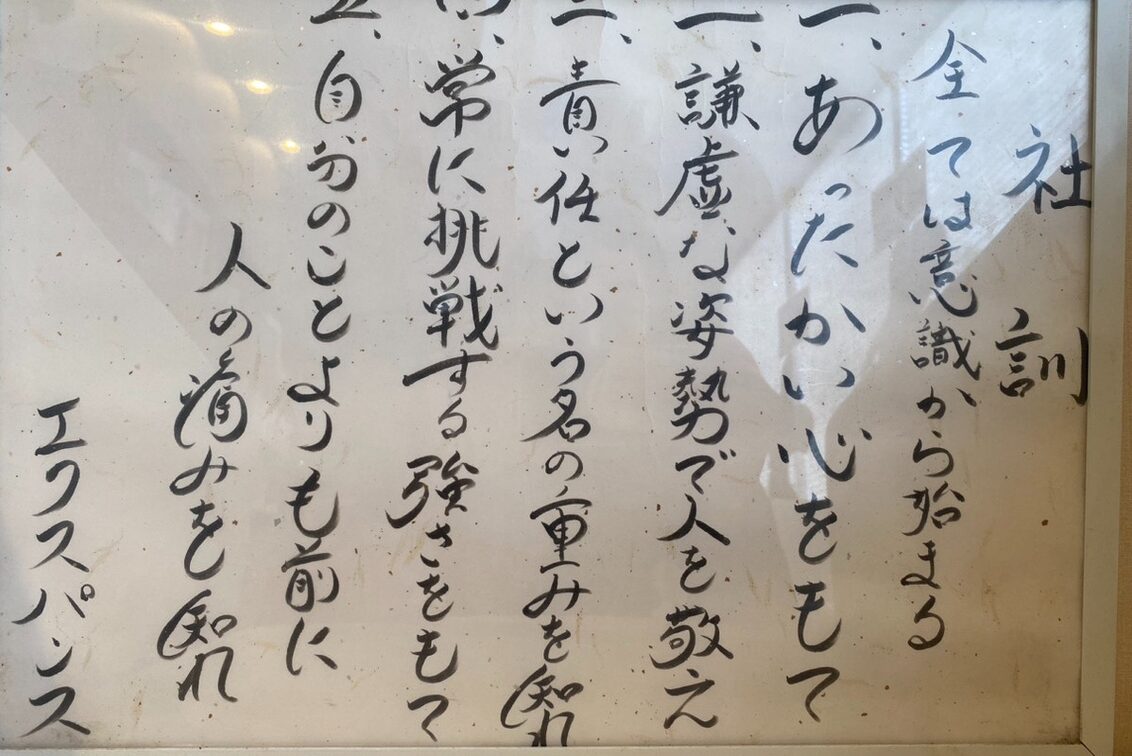 社訓
全ては意識から始まる
一、あったかい心をもて
二、謙虚な姿勢で人を敬え
三、責任という名の重みを知れ
四、常に挑戦する強さをもて
五、自分のことよりも前に
人の痛みを知れ
エクスパンス